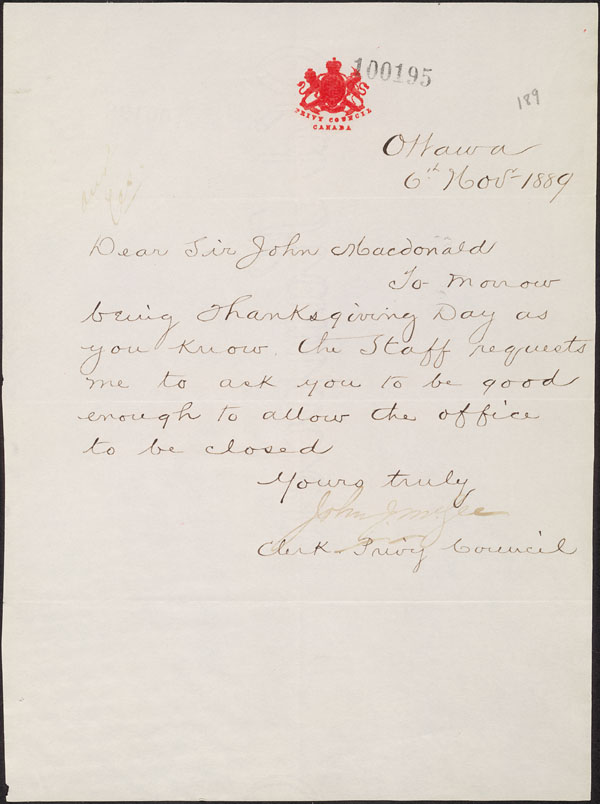 100195
189
PRIVY COUNCIL
CANADA
Ottawa
6th Novr 1889
Dear Sir John Macdonald
To Morrow
being Thanksgiving Day as
you know. the Staff requests
me to ask you to be good
enough to allow the office
to be closed
Yours truly
John J. McGee
Clerk Privy Council